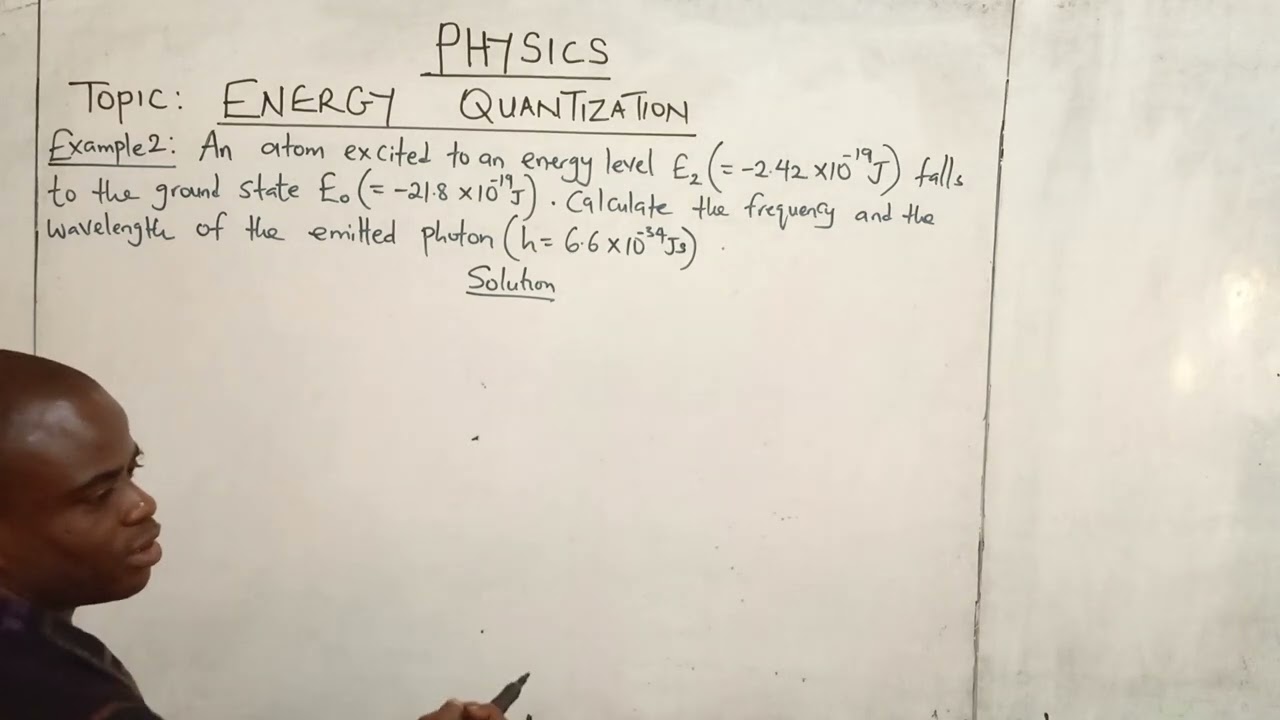 PHYSICS
Topic: ENERGY QUANTIZATION
Example 2: An atom excited to an energy level E₂ (= -2.42 ×10⁻¹⁹J) falls
to the ground state E₀ (= -21.8 ×10⁻¹⁹J). Calculate the frequency and the
wavelength of the emitted photon (h= 6.6 ×10⁻³⁴Js)
Solution